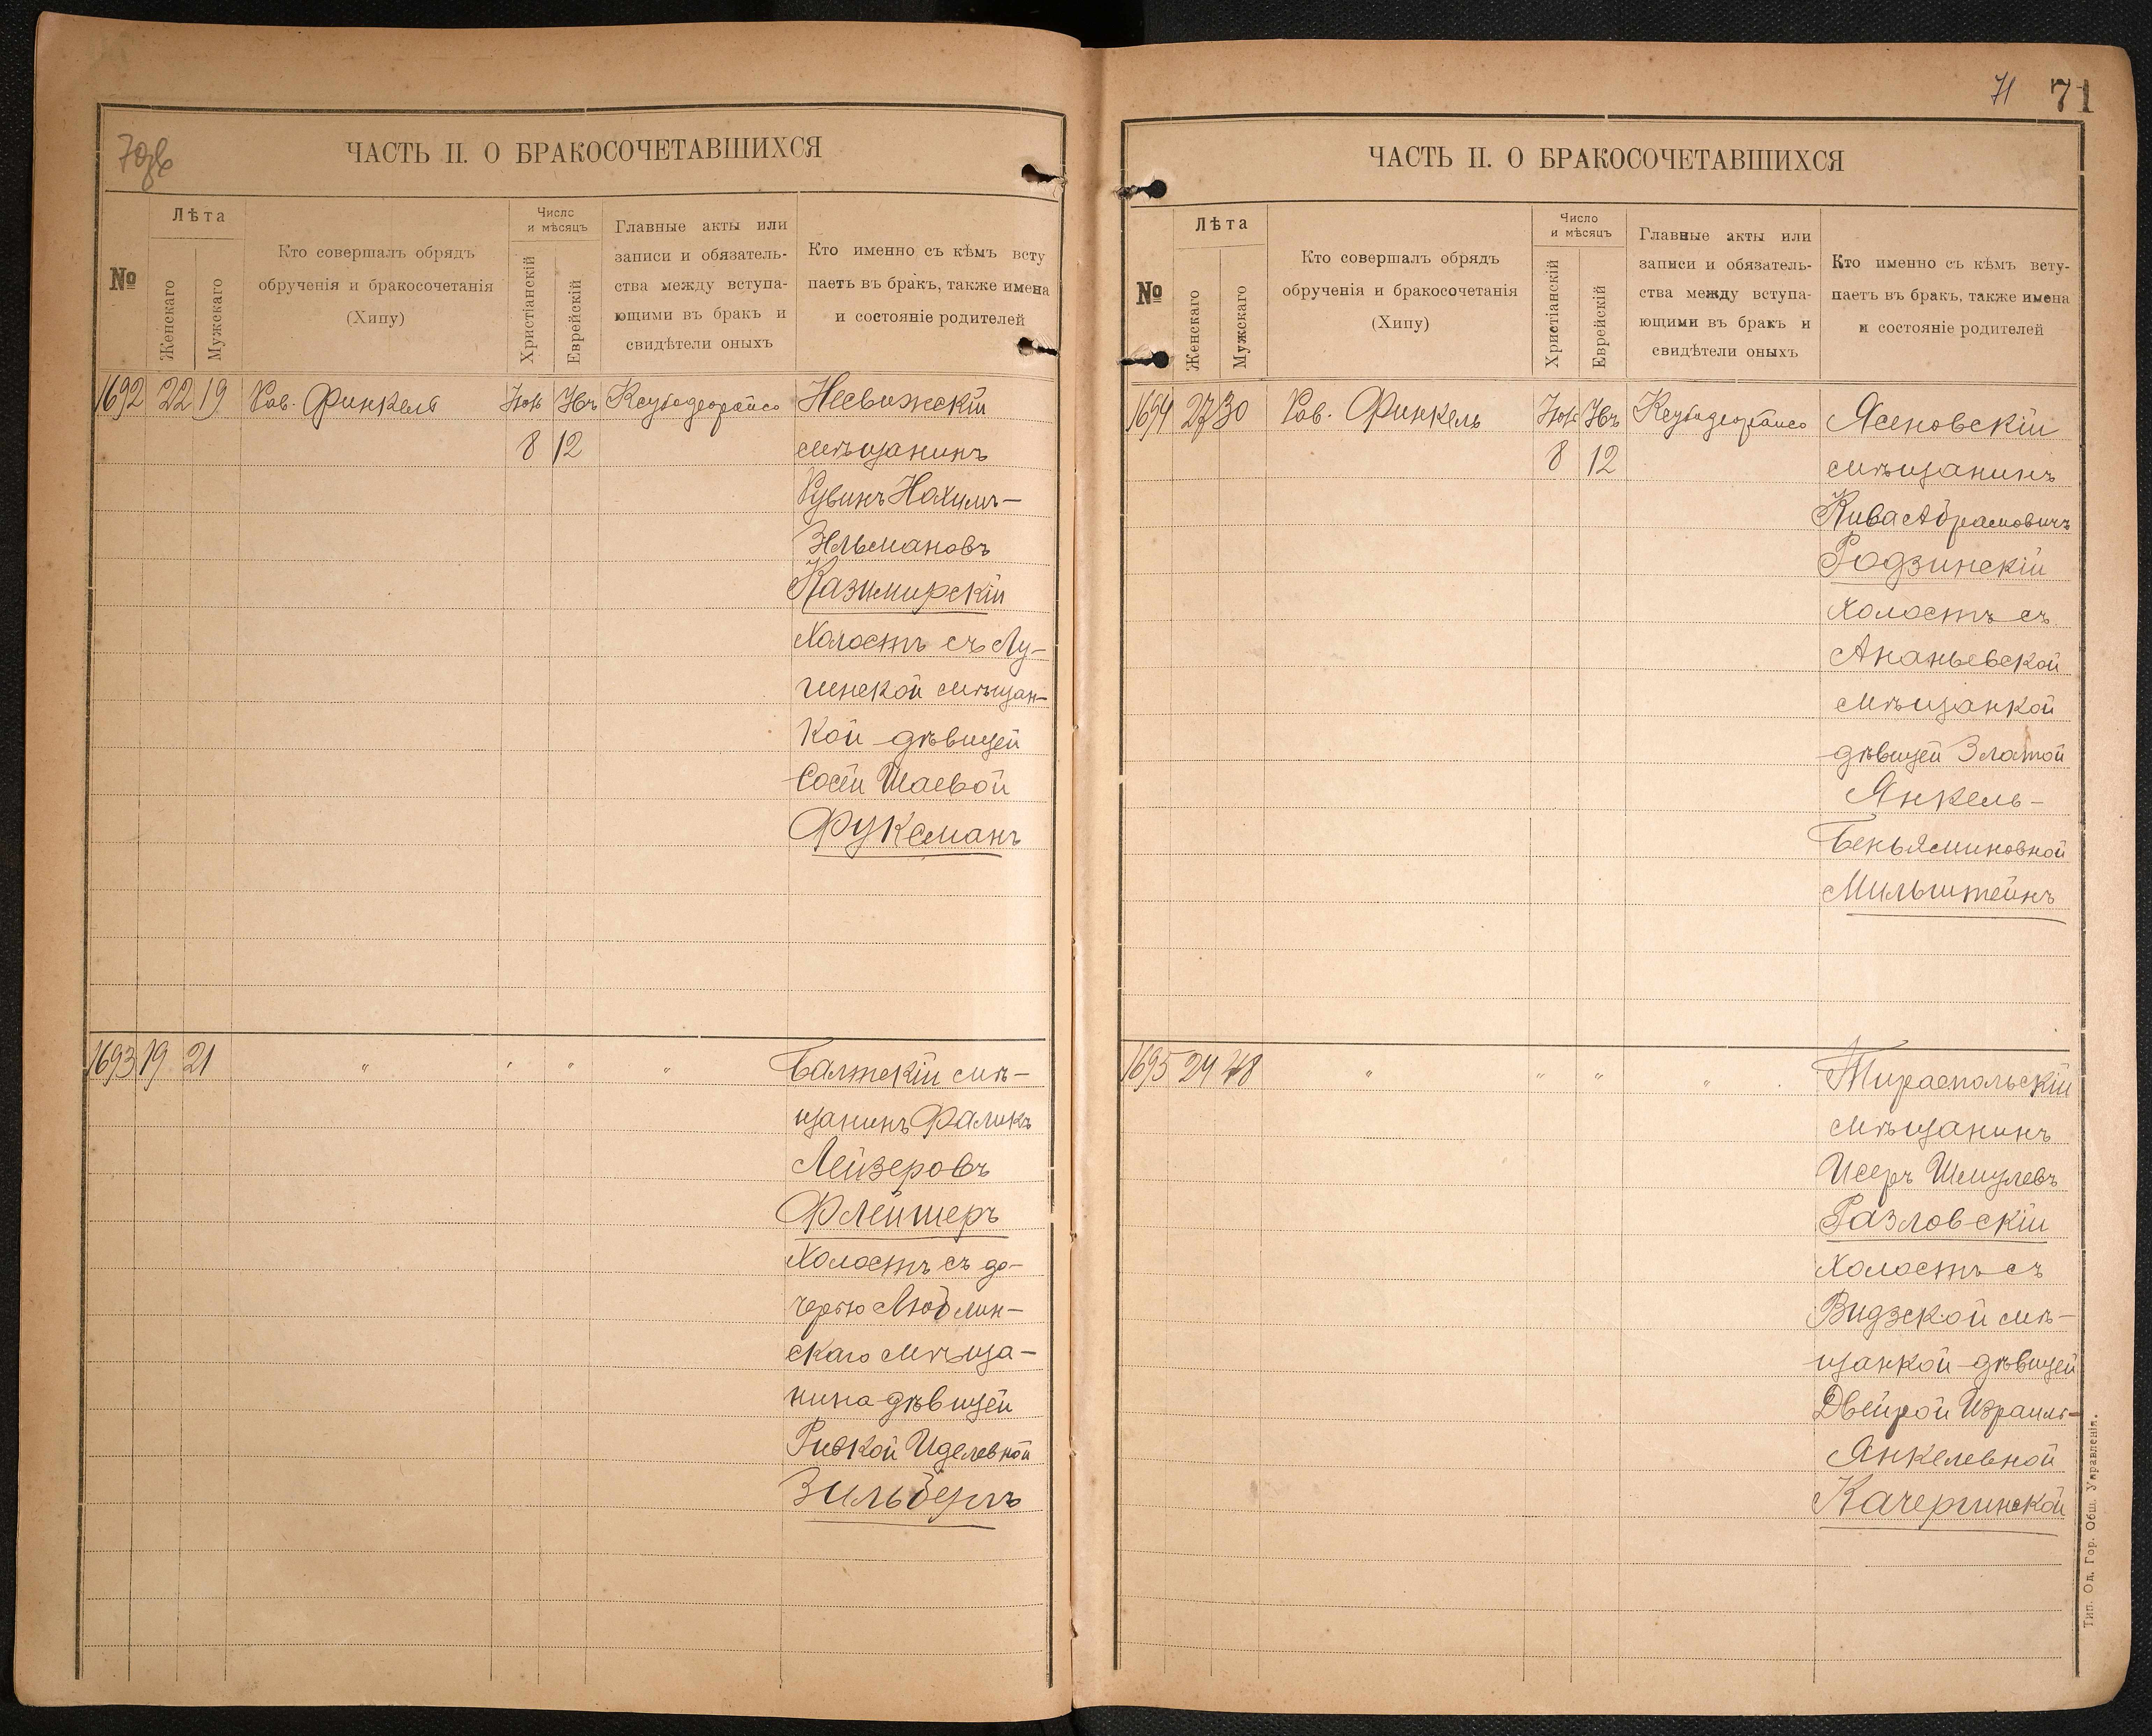 70об
ЧАСТЬ II. О БРАКОСОЧЕТАВШИХСЯ
№
Лѣта
Женскаго
Мужскаго
Кто совершалъ обрядъ
обрученія и бракосочетанія
(Хипу)
Число
и мѣсяцъ
Христіанскій
Еврейскій
Главные акты или
записи и обязатель-
ства между вступа-
ющими въ бракъ и
свидѣтели оныхъ
Кто именно съ кѣмъ всту
паетъ въ бракъ, также имена
и состояніе родителей
1692 22 19 Рав. Финкель
8 12
Несвижскій
мѣщанинъ
Рувинъ Нахимъ-
Зельмановъ
Казимирскій
холостъ съ Лу-
гинской мѣщан-
кой дѣвицей
Сосей Шаевой
Фуксманъ
1693 19 21 " " " "
Балтскій мѣ-
щанинъ Фаликъ
Лейзеровъ
Флейшеръ
холостъ съ до-
черью Люблин-
скаго мѣща-
нина дѣвицей
Ривкой Иделевной
Зильбергъ
71 71
ЧАСТЬ II. О БРАКОСОЧЕТАВШИХСЯ
№
Лѣта
Женскаго
Мужскаго
Кто совершалъ обрядъ
обрученія и бракосочетанія
(Хипу)
Число
и мѣсяцъ
Христіанскій
Еврейскій
Главные акты или
записи и обязатель-
ства между вступа-
ющими въ бракъ и
свидѣтели оныхъ
Кто именно съ кѣмъ всту-
паетъ въ бракъ, также имена
и состояніе родителей
1694 27 30 Рав. Финкель
8 12
Ясеновскій
мѣщанинъ
Кива Абрамовичъ
Родзинскій
холостъ съ
Ананьевской
мѣщанкой
дѣвицей Златой
Янкель-
Беньяминовной
Мильштейнъ
1695 24 28 " " " "
Тираспольскій
мѣщанинъ
Исеръ Шмулевъ
Разловскій
холостъ съ
Видзской мѣ-
щанкой дѣвицей
Двейрой Израиль-
Янкелевной
Качергинской
Тип. Од. Гор. Общ. Управленія.